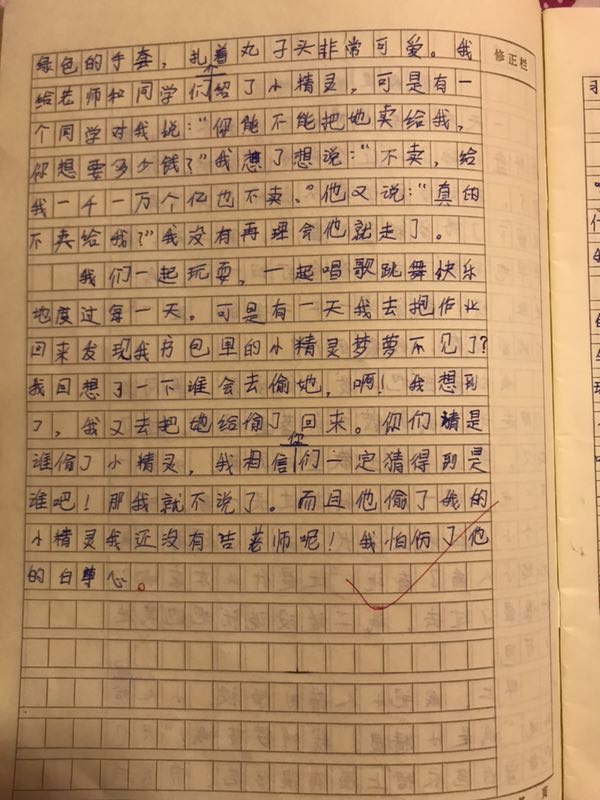 绿色的手套，扎着丸子头非常可爱。我
修正栏
给老师和同学们介绍了小精灵，可是有一
个同学对我说：“你能不能把她卖给我，
你想要多少钱？”我想了想说：“不卖，给
我一千一万个亿也不卖。”他又说：“真的
不卖给我？”我没有再理会他就走了。
我们一起玩耍，一起唱歌跳舞快乐
地度过每一天。可是有一天我去抱作业
回来发现我书包里的小精灵梦萝不见了？
我回想了一下谁会去偷她，啊！我想到
了，我又去把她给偷了回来。你们猜是
谁偷了小精灵，我相信你们一定猜得到是
谁吧！那我就不说了。而且他偷了我的
小精灵我还没有告老师呢！我怕伤了他
的自尊心。